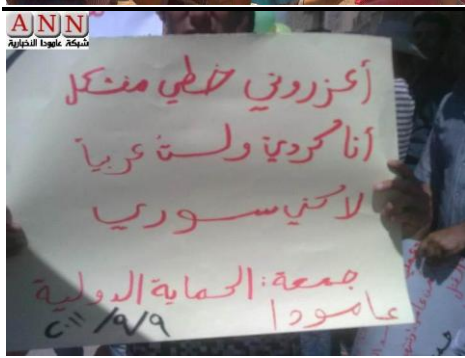 ANN
شبكة عامودا الاخبارية
أعزروني خطي مشكل
أنا كردي ولست عربياً
لاكني سوري
جمعة: الحماية الدولية
عامودا
٢٠١١/٩/٩